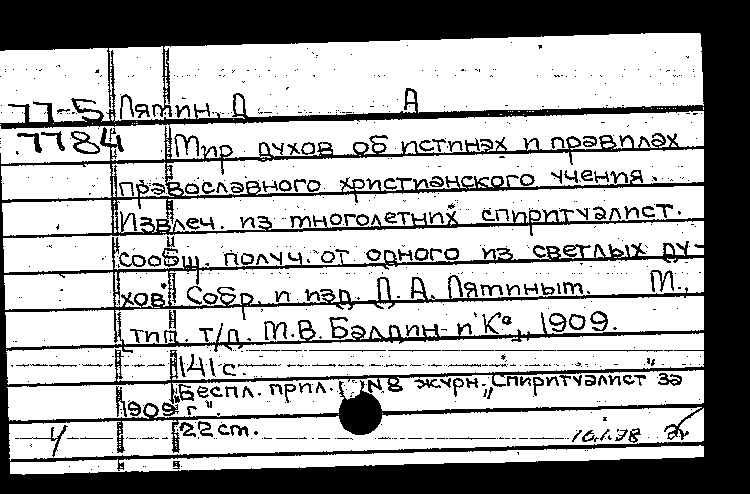 77-5 Лятин, Д А
7784 Мир духов об истинах и правилах
православного христианского учения.
Извлеч. из многолетних спиритуалист.
сообщ. получ. от одного из светлых ду-
хов. Собр. и изд. Д. А. Лятиным. М.,
тип. т/д. М.В. Балдин и К°, 1909.
141 с.
Беспл. прил. N8 журн. „Спиритуалист" за
1909 г".
22 см.
16.1.78